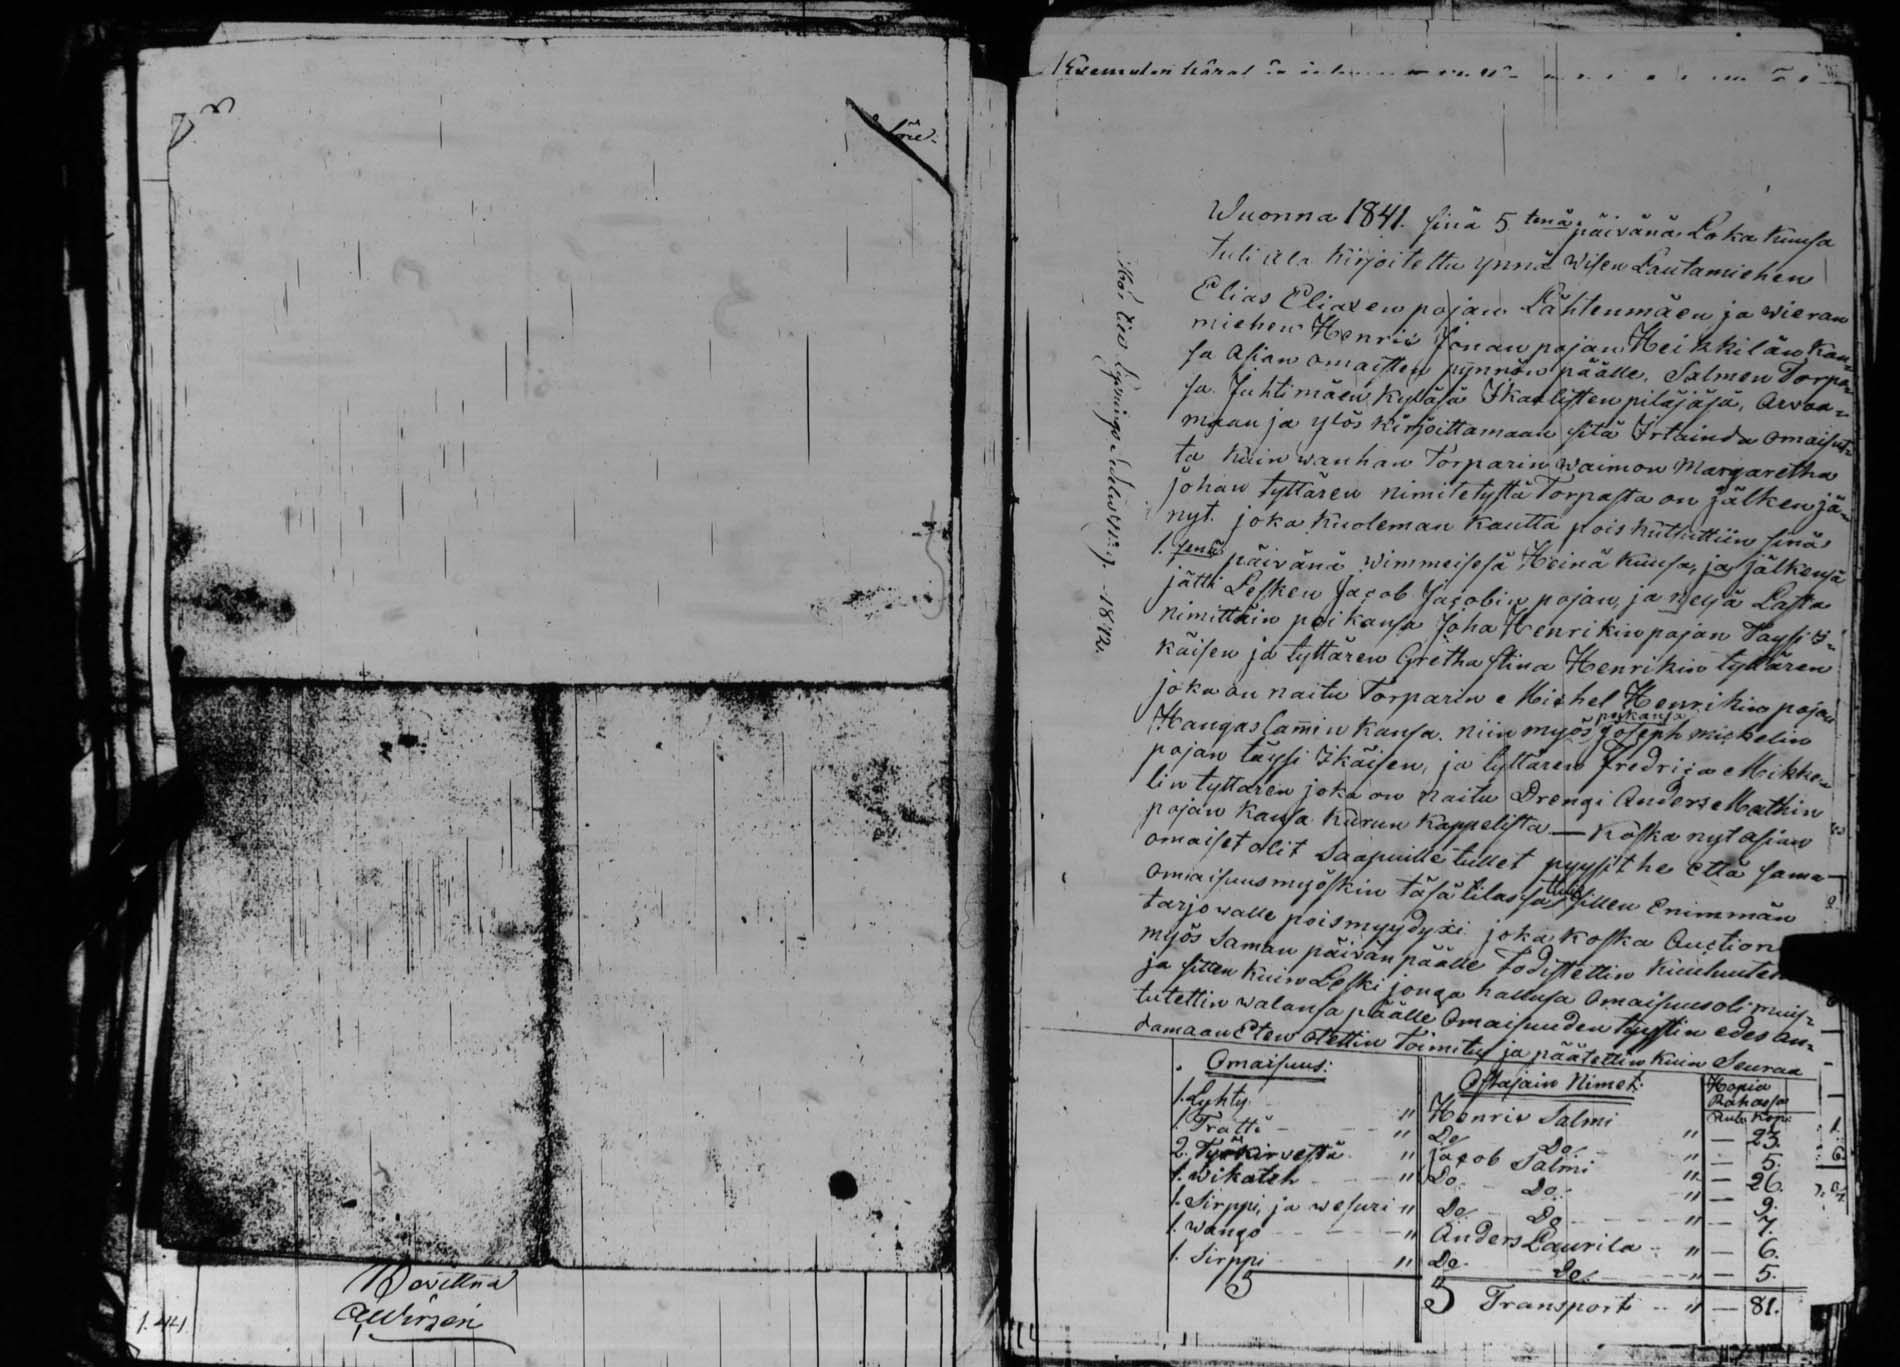 Bevittna
1.441.
Wuonna 1841. sinä 5 tenä päivänä Loka kuusa
tuli ala kirjoitettu ynnä wisen Lautamiehen
Elias Eliaxen pojan Lähtenmäen ja wieran
miehen Henric Jonan pojan Heikkilän kan=
sa asian omaisten pynnön päälle, Salmen Torpa=
sa Juhtimäen kyläsä Ikalisten pitäjäsä, Arvaa=
maan ja ylös kirjoittamaan sitä Irtainda omaisut=
ta kuin wanhan Torparin waimon Margaretha
Johan tyttären nimitetystä Torpasta on jälken jä=
nyt. joka kuoleman kautta pois kutsuttiin sinä
1. senä päivänä wimmeisesä Heinä kuusa, ja jälkensä
jätti Lesken Jacob Jacobin pojan, ja neljä Lasta
nimittäin poikansa Joha Henrikin pojan Täysi I=
käisen ja tyttären Gretha Stina Henrikin tyttären
joka on naitu Torparin Michel Henrikin pojan
Hangaslamin kansa. niin myös poikansa Joseph mickelin
pojan täysi Ikäisen, ja tyttären Fredrica Mikke=
lin tyttären joka on naitu Drengi Anders Mathin
pojan kansa Kurun kappelista — Koska nyt asian
omaiset olit Saapuille tullet pyysit he että sama
omaisuus myöskin täsä tilassa tulis sillen Enimmän
tarjowalle pois myydyxi joka koska Auction
myös saman päivän päälle Todistettin kuulutetu
ja sitten kuin Leski jonga hallusa omaisuus oli muis=
tutettin walansa päälle Omaisuuden tyystin edes an=
damaan Eten otettin Toimitus ja päätettin kuin Seuraa
Omaisuus: Ostajain Nimet: Hopia Rahassa
Rub. Kop:
1. Lyhty " Henric Salmi " — 23.
1. Trätti " Do Do " — 5.
2. Työkirvestä " Jacob Salmi " — 26.
1. Wikateh " Do Do " — 9.
1. Sirppi, ja wesuri " Do Do " — 7.
1. Wango " Anders Laurila " — 6.
1. Sirppi " Do Do " — 5.
Transport " — 81.